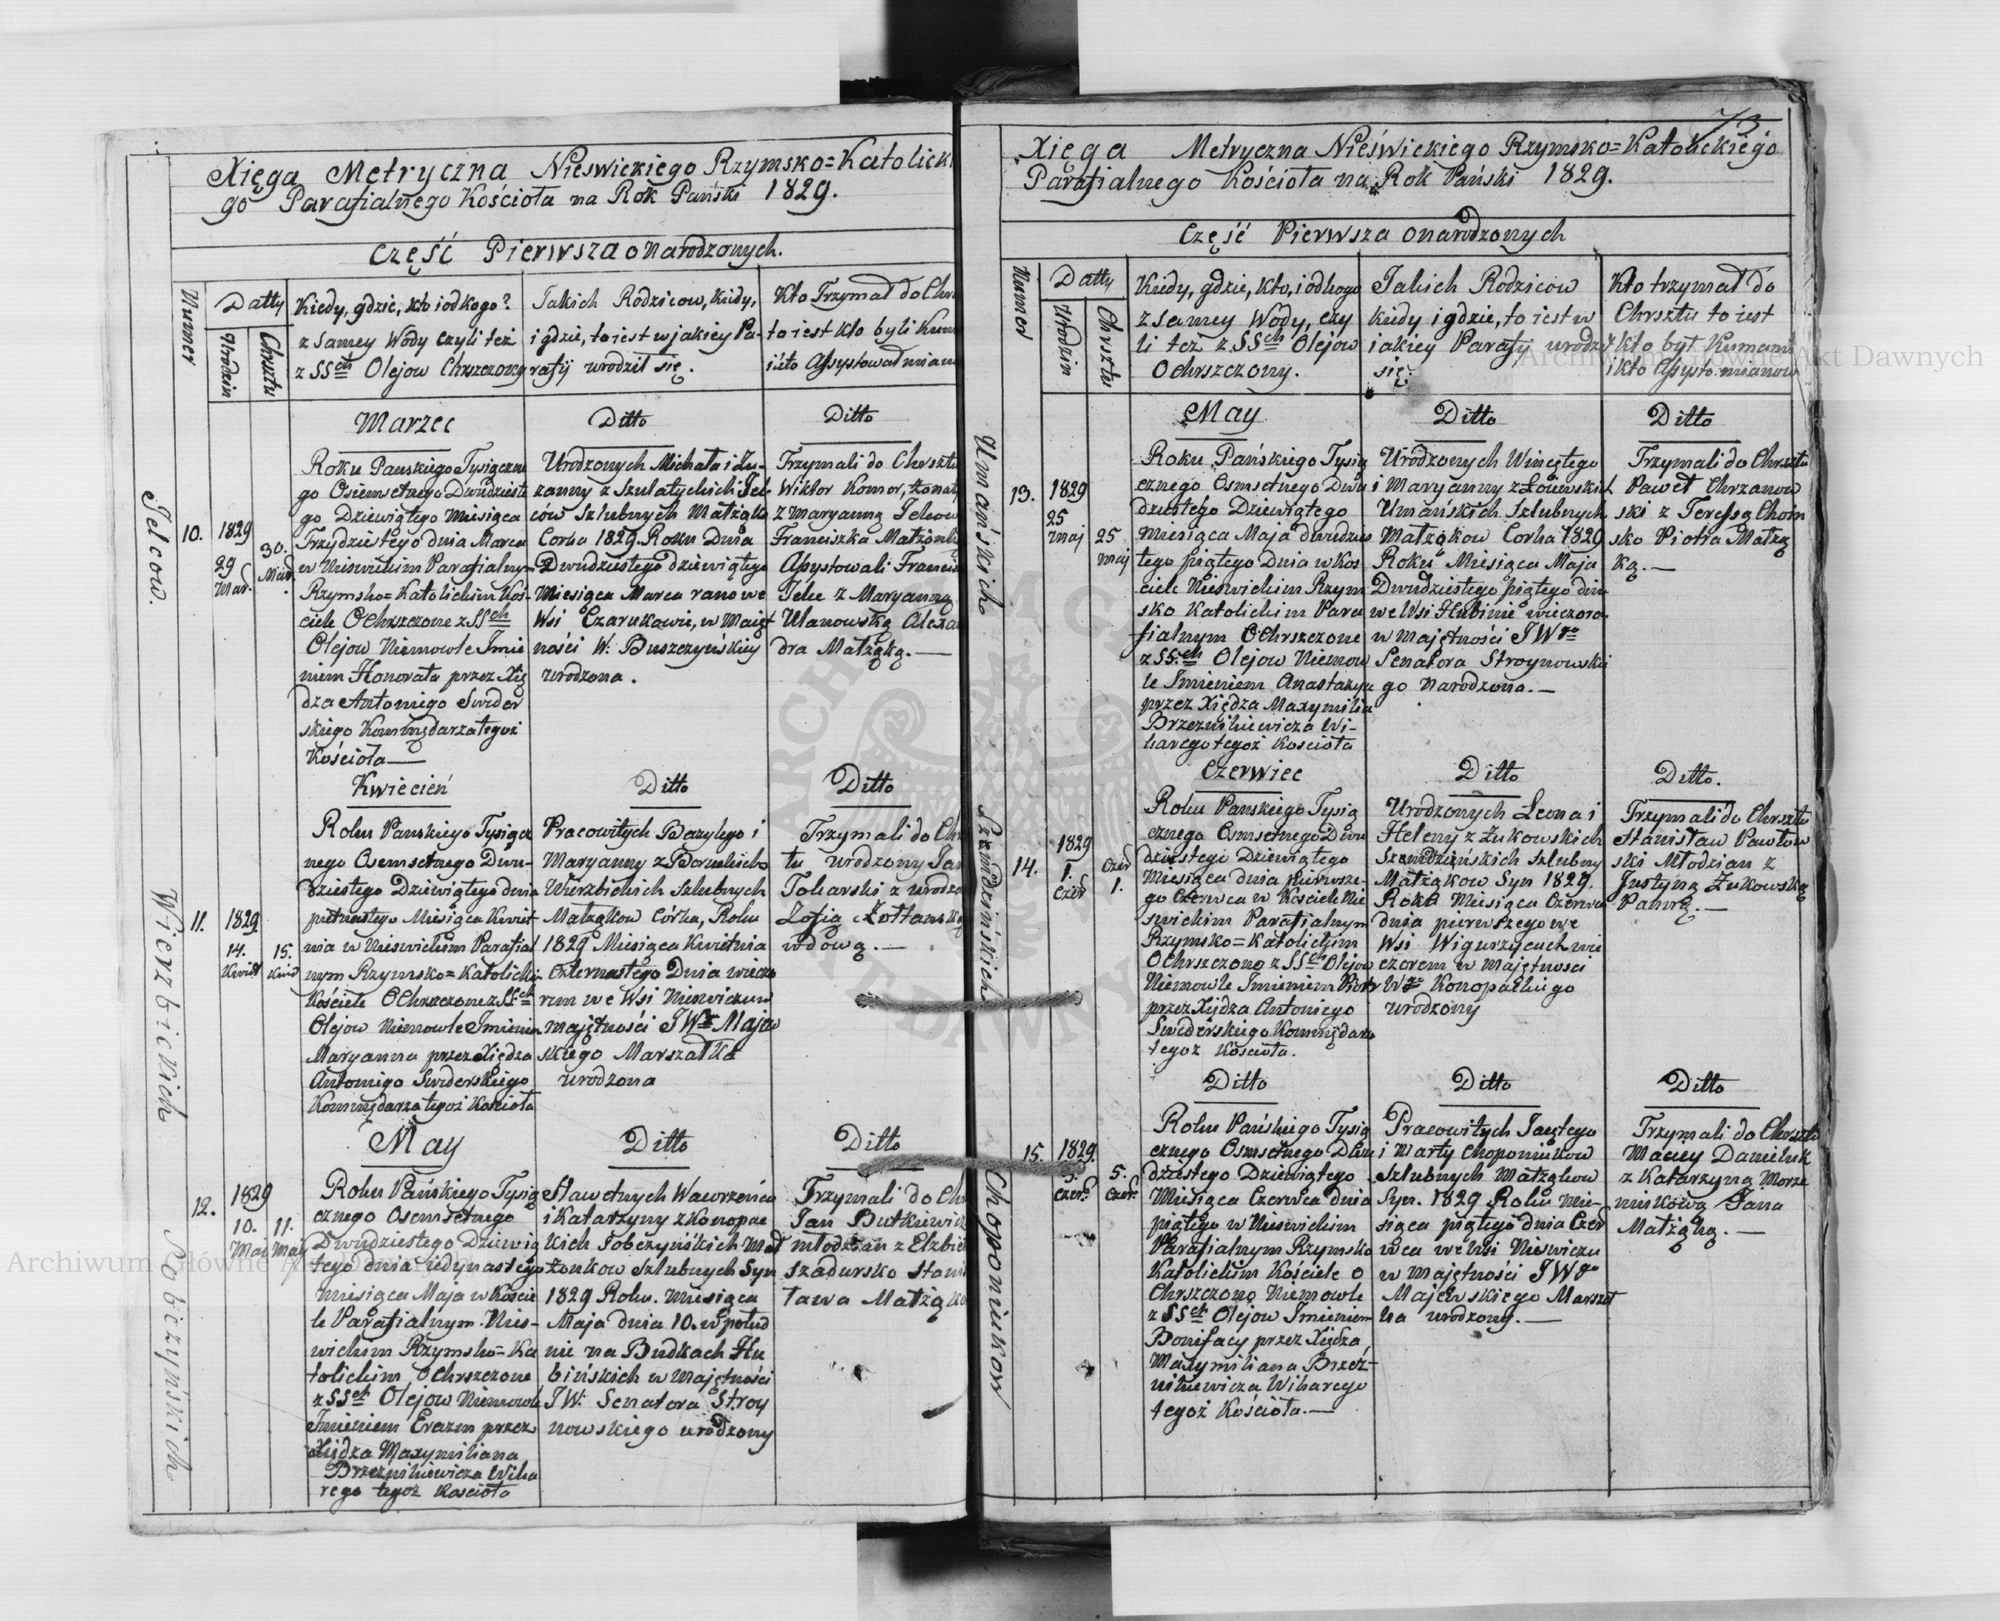 Xięga Metryczna Nieswickiego Rzymsko=Katolickie
go Parafialnego Kościoła na Rok Pański 1829.
Część Pierwsza o Narodzonych.
Numer
Datty
Urodzin
Chrztu
Kiedy, gdzie, kto i od kogo?
z samey Wody czyli też
z SSch Olejow Chrzczony
Jakich Rodzicow, kiedy,
i gdzie, to iest w jakiey Pa-
rafij urodził się.
Kto Trzymał do Chrz
to iest kto byli Kum
i kto Assystował mian
Jelcow.
10.
1829
29
Mar.
30.
Mar.
Marzec
Roku Panskiego Tysiączne
go Osiemsetnego Dwudzieste
go Dziewiątego Miesiąca
Trzydziestego dnia Marca
w Nieswickim Parafialnym
Rzymsko=Katolickim Koś-
ciele Ochrzczone z SSch
Olejow Niemowle Imie
niem Honorata przez Xię
dza Antoniego Swider
skiego Kommędarza tegoż
Kościoła—
Ditto
Urodzonych Michała i Zu-
zanny z Szulatyckich Jel-
ców Szlubnych Małżąko
Corka 1829. Roku Dnia
Dwudziestego dziewiątego
Miesiąca Marca rano we
Wsi Czarukowie, w Maięt
ności W: Buszczyńskiey
urodzona.
Ditto
Trzymali do Chrsztu
Wiktor Komor, żonaty
z Maryanną Jelcow
Franciszka Małżonk
Assystowali Francis
Jelec z Maryanną
Ulanowską Alexan
dra Małżąką.—
Wierzbickich
11.
1829
14.
Kwiet
15.
Kwiet
Kwiecień
Roku Panskiego Tysiącz
nego Osemsetnego Dwu-
dziestego Dziewiątego dnia
pietnastego Miesiąca Kwiet
nia w Nieswickim Parafial
nym Rzymsko=Katolickim
Kościele Ochrzczone z SSch
Olejow Niemowle Imienim
Maryanna przez Xiędza
Antoniego Swiderskiego
Kommędarza tegoż Kościoła
Ditto
Pracowitych Bazylego i
Maryanny z
Wierzbickich Szlubnych
Małżąkow Córka, Roku
1829 Miesiąca Kwietnia
Czternastego Dnia wieczo
rem we Wsi Nieswiczu w
majętności JWo Majew
skiego Marszałka
urodzona
Ditto
Trzymali do Chrsz
tu urodzony Jan
Tokarski z urodzo
Zofią Zołtansk
wdową.—
Sobczyńskich
12.
1829
10.
Mai
11.
Maj
May
Roku Pańskiego Tysią
cznego Osemsetnego
Dwudziestego Dziewią
tego dnia iedynastego
miesiąca Maja w Koście
le Parafialnym Nies-
wickim Rzymsko=Ka
tolickim Ochrszczone
z SSch Olejow Niemowle
Imieniem Erazm przez
Xiędza Maxymiliana
Brzezinkiewicza Wika
rego tegoż Kościoła
Ditto
Sławetnych Wawrzeńca
i Katarzyny z Konopac
kich Sobczyńskich Mał
żonkow Szlubnych Syn
1829 Roku. Miesiąca
Maja dnia 10. w połud
nie na Budkach Hu
bińskich w Majętności
JW: Senatora Stroy
nowskiego urodzony
Ditto
Trzymali do Chr
Jan Butkiewicz
młodzian z Elzbie
Szadursko Stanis
ława Małżąk
73
Xięga Metryczna Nieświckiego Rzymsko=Katolickiego
Parafialnego Kościoła na Rok Pański 1829.
Część Pierwsza o narodzonych
Numer
Datty
Urodzin
Chrsztu
Kiedy, gdzie, kto, i od kogo
z samey Wody, czy
li też z SSch Olejów
Ochrszczony.
Jakich Rodzicow
kiedy i gdzie, to iest w
iakiey Parafij urodził
się.
Kto trzymał do
Chrsztu to iest
kto był. Kumami
i kto Assysto. mianow
Umańskich
13.
1829
25
maj
25
maj
May
Roku Pańskiego Tysią
cznego Osmsetnego Dwu
dziestego Dziewiątego
miesiąca Maja dwudzies
tego piątego Dnia w Koś
ciele Nieświckim Rzym
sko Katolickim Para
fialnym Ochrszczone
z SS:ch Olejow Niemow
le Imieniem Anastazya
przez Xiędza Maxymilia
Brzezinkiewicza Wi-
karego tegoż Kościoła
Ditto
Urodzonych Wincętego
i Maryanny z Łoiewskich
Umańskich Szlubnych
Małżąkow Corka 1829
Roku Miesiąca Maja
Dwudziestego piątego dnia
we Wsi Hubinie wieczoro
w majętności JWgo
Senatora Stroynowskie
go narodzona.—
Ditto
Trzymali do Chrsztu
Paweł Chrzanow
ski z Teressą Choin
sko Piotra Małżą
ką.—
Szemdzińskich
14.
1829
1.
Czer
Czer
1.
Czerwiec
Roku Panskiego Tysią
cznego Osmsetnego Dwu
dziestego Dziewiątego
Miesiąca dnia pierwsze-
go Czerwca w Kościele Nie
swickim Parafialnym
Rzymsko=Katolickim
Ochrszczono z SSch Olejow
Niemowle Imieniem Piotr
przez Xiędza Antoniego
Swiderskiego Kommędarza
tegoż Kościoła.
Ditto
Urodzonych Leona i
Heleny z Żukowskich
Szemdzińskich Szlubny
Małżąkow Syn 1829.
Roku Miesiąca Czerwca
dnia pierwszego we
Wsi Wigurzycach wie
czorem w Majętności
Wgo Konopackiego
urodzony
Ditto.
Trzymali do Chrsztu
Stanisław Pawłow
ski Młodzian z
Justyną Żukowską
Panną.—
Choponiukow
15.
1829.
5.
Czer.
5.
Czer.
Ditto
Roku Pańskiego Tysią
cznego Osmsetnego Dwu
dziestego Dziewiątego
Miesiąca Czerwca dnia
piątego w Nieswickim
Parafialnym Rzymsko
Katolickim Kościele o
Chrszczono Niemowle
z SSch Olejow Imieniem
Bonifacy przez Xiędza
Maxymiliana Brzez-
inkiewicza Wikarego
tegoż Kościoła.—
Ditto
Pracowitych Jacętego
i Marty Choponiukow
Szlubnych Małżąkow
Syn. 1829 Roku Mie-
siąca piątego dnia Czer
wca we Wsi Nieswiczu
w Majętności JWgo
Majewskiego Marszał
ka urodzony.—
Ditto
Trzymali do Chrsztu
Maciey Daneluk
z Katarzyną Morze
niukową Jana
Małżąką.—
Archiwum Główne Akt Dawnych
Archiwum Główne Akt Dawnych